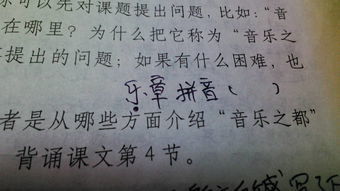 可以先对课题提出问题,比如:“音
在哪里?为什么把它称为“音乐之
提出的问题;如果有什么困难,也
乐章拼音( )
者是从哪些方面介绍“音乐之都”
背诵课文第4节。